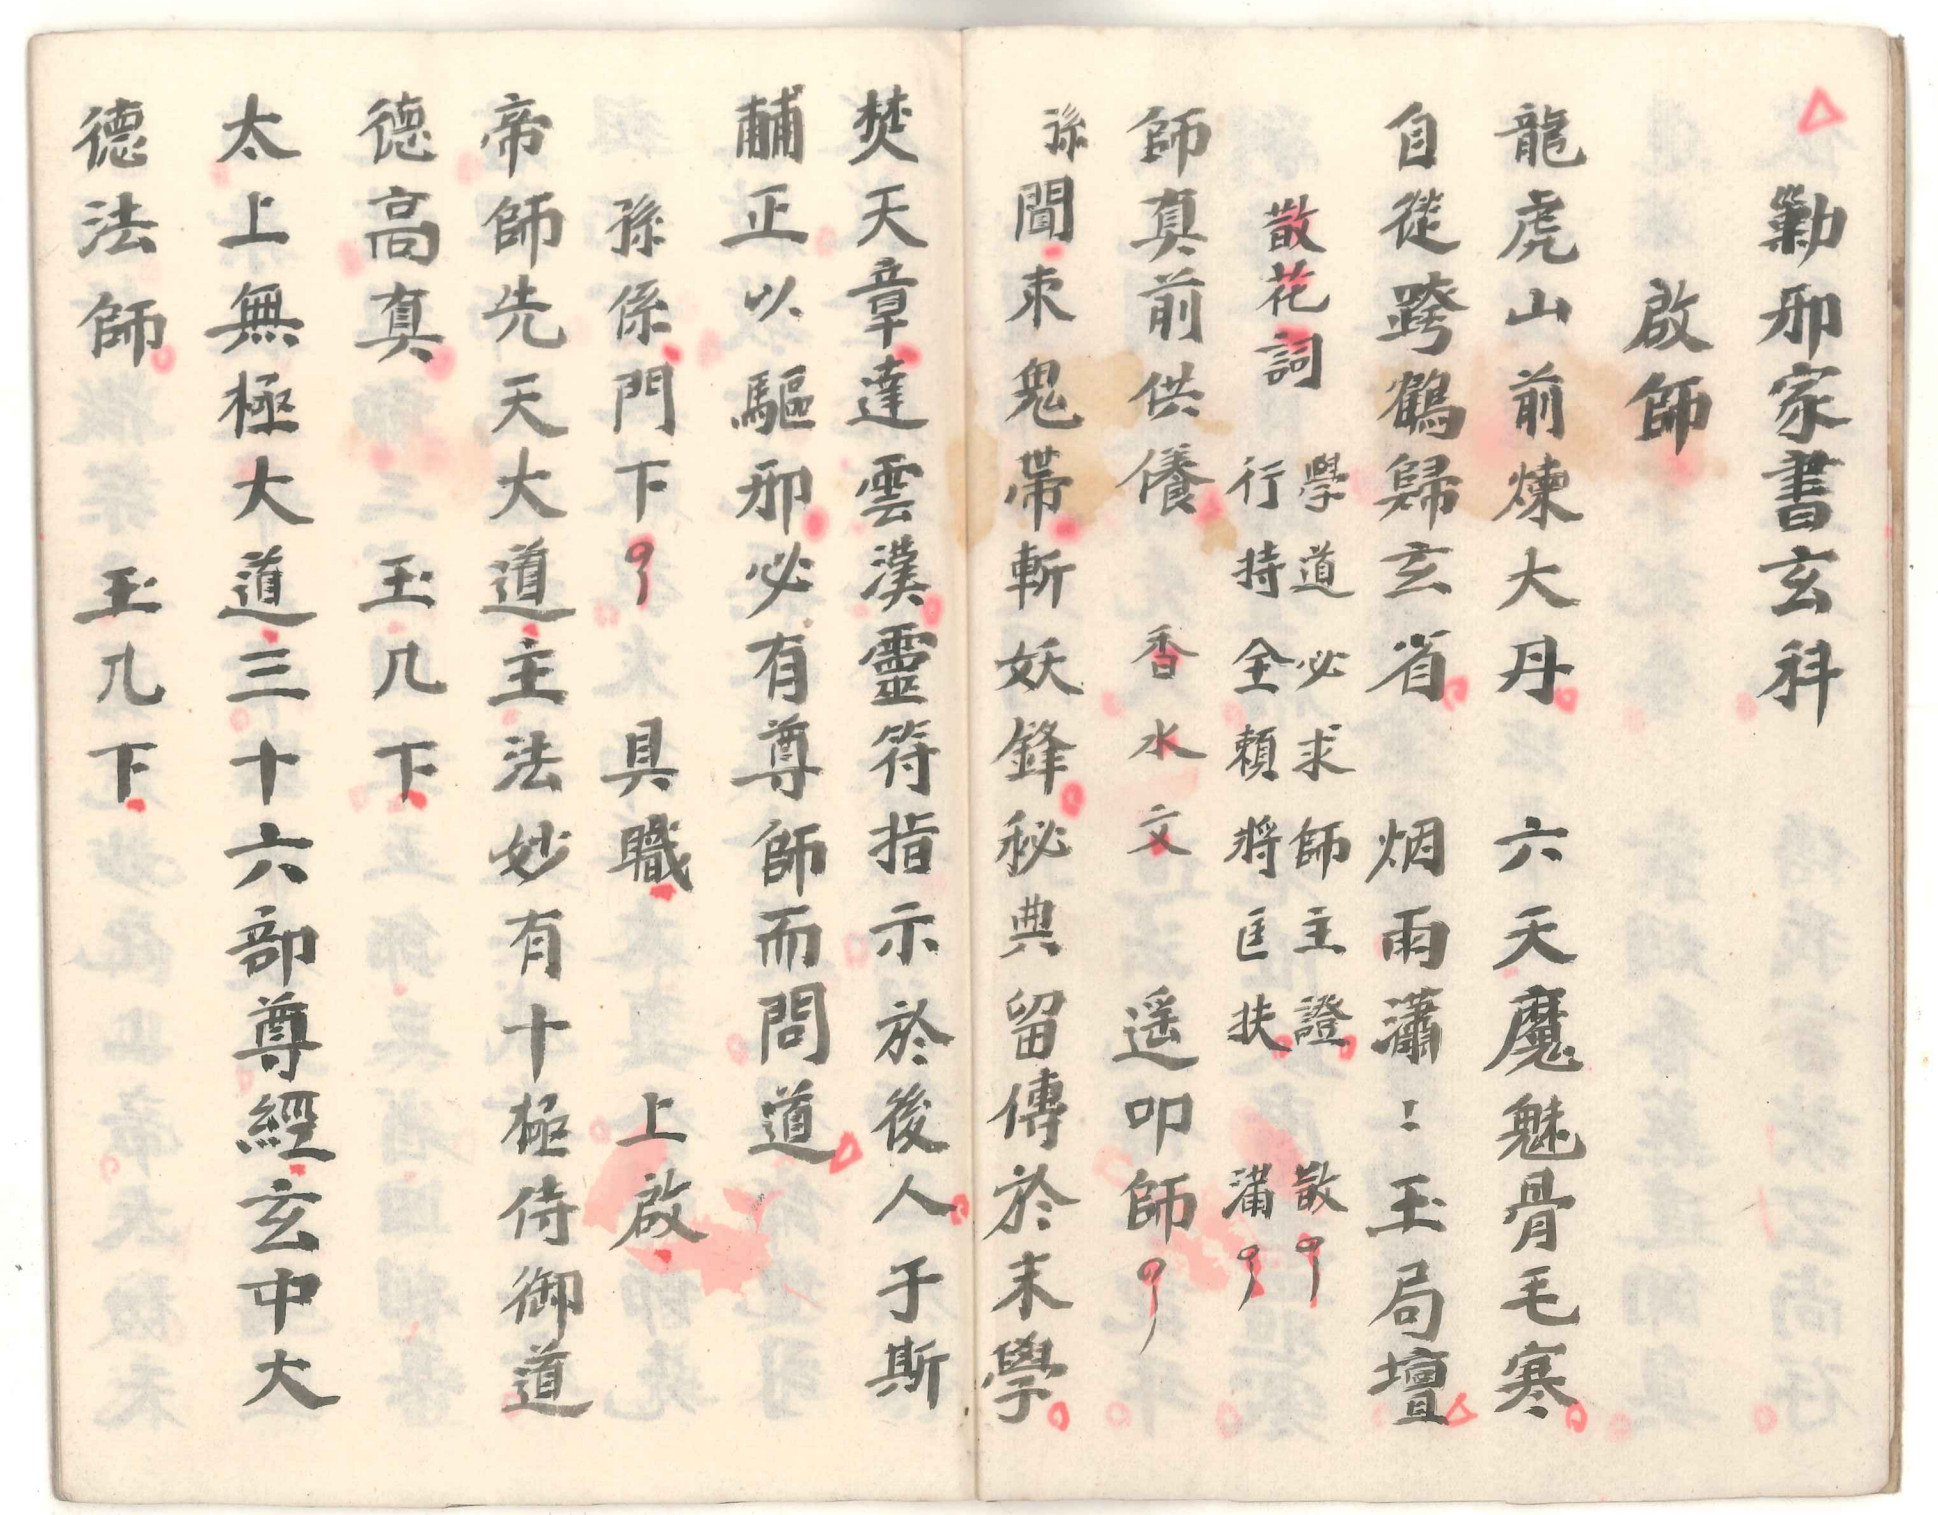 勦邪家書玄科
啟師
龍虎山前煉大丹 六天魔魅骨毛寒
自從跨鶴歸玄省 烟雨瀟：玉局壇
散花詞 學道必求師主證 散
行持全賴將匡扶 滿
師真前供養 香水文 遥叩師
孫聞束鬼帶斬妖鋒秘典留傳於末學
焚天章達雲漢靈符指示於後人于斯
輔正以驅邪必有尊師而問道
孫係門下 具職 上啟
帝師先天大道主法妙有十極侍御道
德高真 玉几下
太上無極大道三十六部尊經玄中大
德法師 玉几下